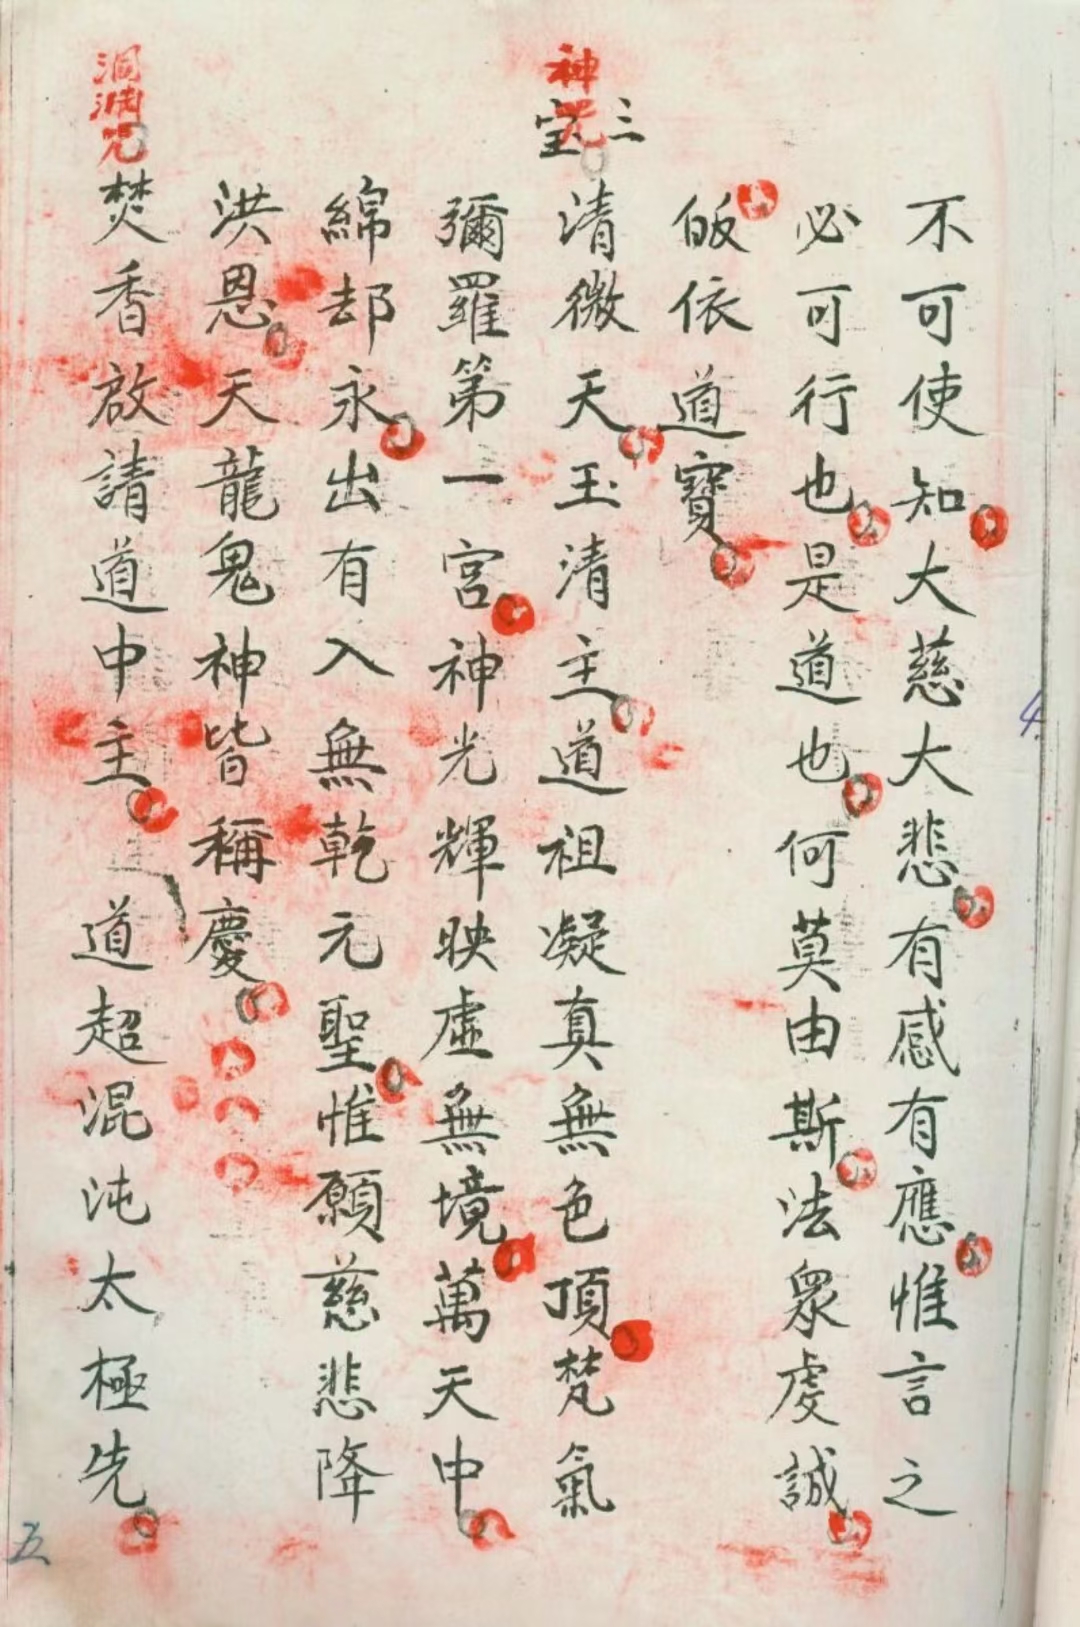 不可使知大慈大悲有感有應惟言之
必可行也是道也何莫由斯法眾虔誠
皈依道寶
三宝
神咒
清微天玉清主道祖凝真無色頂梵氣
彌羅第一宮神光輝映虛無境萬天中
綿却永出有入無乾元聖惟願慈悲降
洪恩天龍鬼神皆稱慶
洞渊咒
焚香啟請道中主道超混沌太極先
4
五